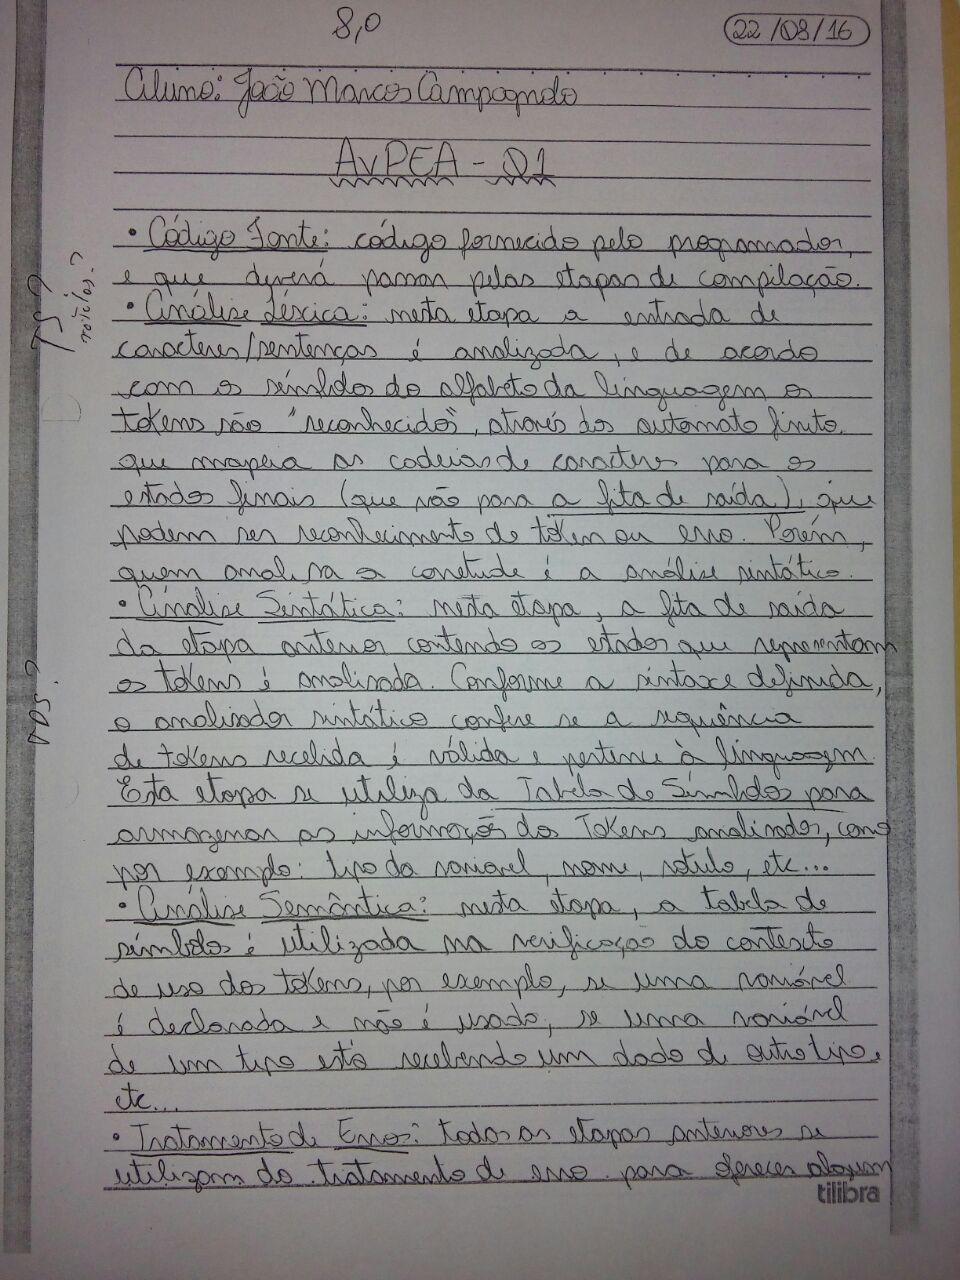 8,0
22/08/16
Aluno: João Marcos Campagnolo
AvPEA - 01
• Código Fonte: código fornecido pelo programador,
e que deverá passar pelas etapas de compilação.
• Análise Léxica: nesta etapa a entrada de
caracteres/sentenças é analizada, e de acordo
com os símbolos do alfabeto da linguagem os
tokens são "reconhecidos", através dos automato finito
que mapeia as cadeias de caracteres para os
estados finais (que vão para a fita de saída), que
podem ser reconhecimento de token ou erro. Porém,
quem analisa a é a análise sintático.
• Análise Sintática: nesta etapa, a fita de saída
da etapa anterior contendo os estados que representam
os tokens é analisada. Conforme a sintaxe definida,
o analisador sintático confere se a sequência
de tokens recebida é válida e pertence à linguagem.
Esta etapa se utiliza da Tabela de Símbolos para
armazenar as informações dos Tokens analisados, como
por exemplo: tipo da variavel, nome, rotulo, etc...
• Análise Semântica: nesta etapa, a tabela de
símbolos é utilizada na verificação do contexto
de uso dos tokens, por exemplo, se uma variável
é declarada e não é usada, se uma variável
de um tipo está recebendo um dado de outro tipo,
etc...
• Tratamento de Erros: todas as etapas anteriores se
utilizam do tratamento de erro para oferecer algum
tilibra
TS?